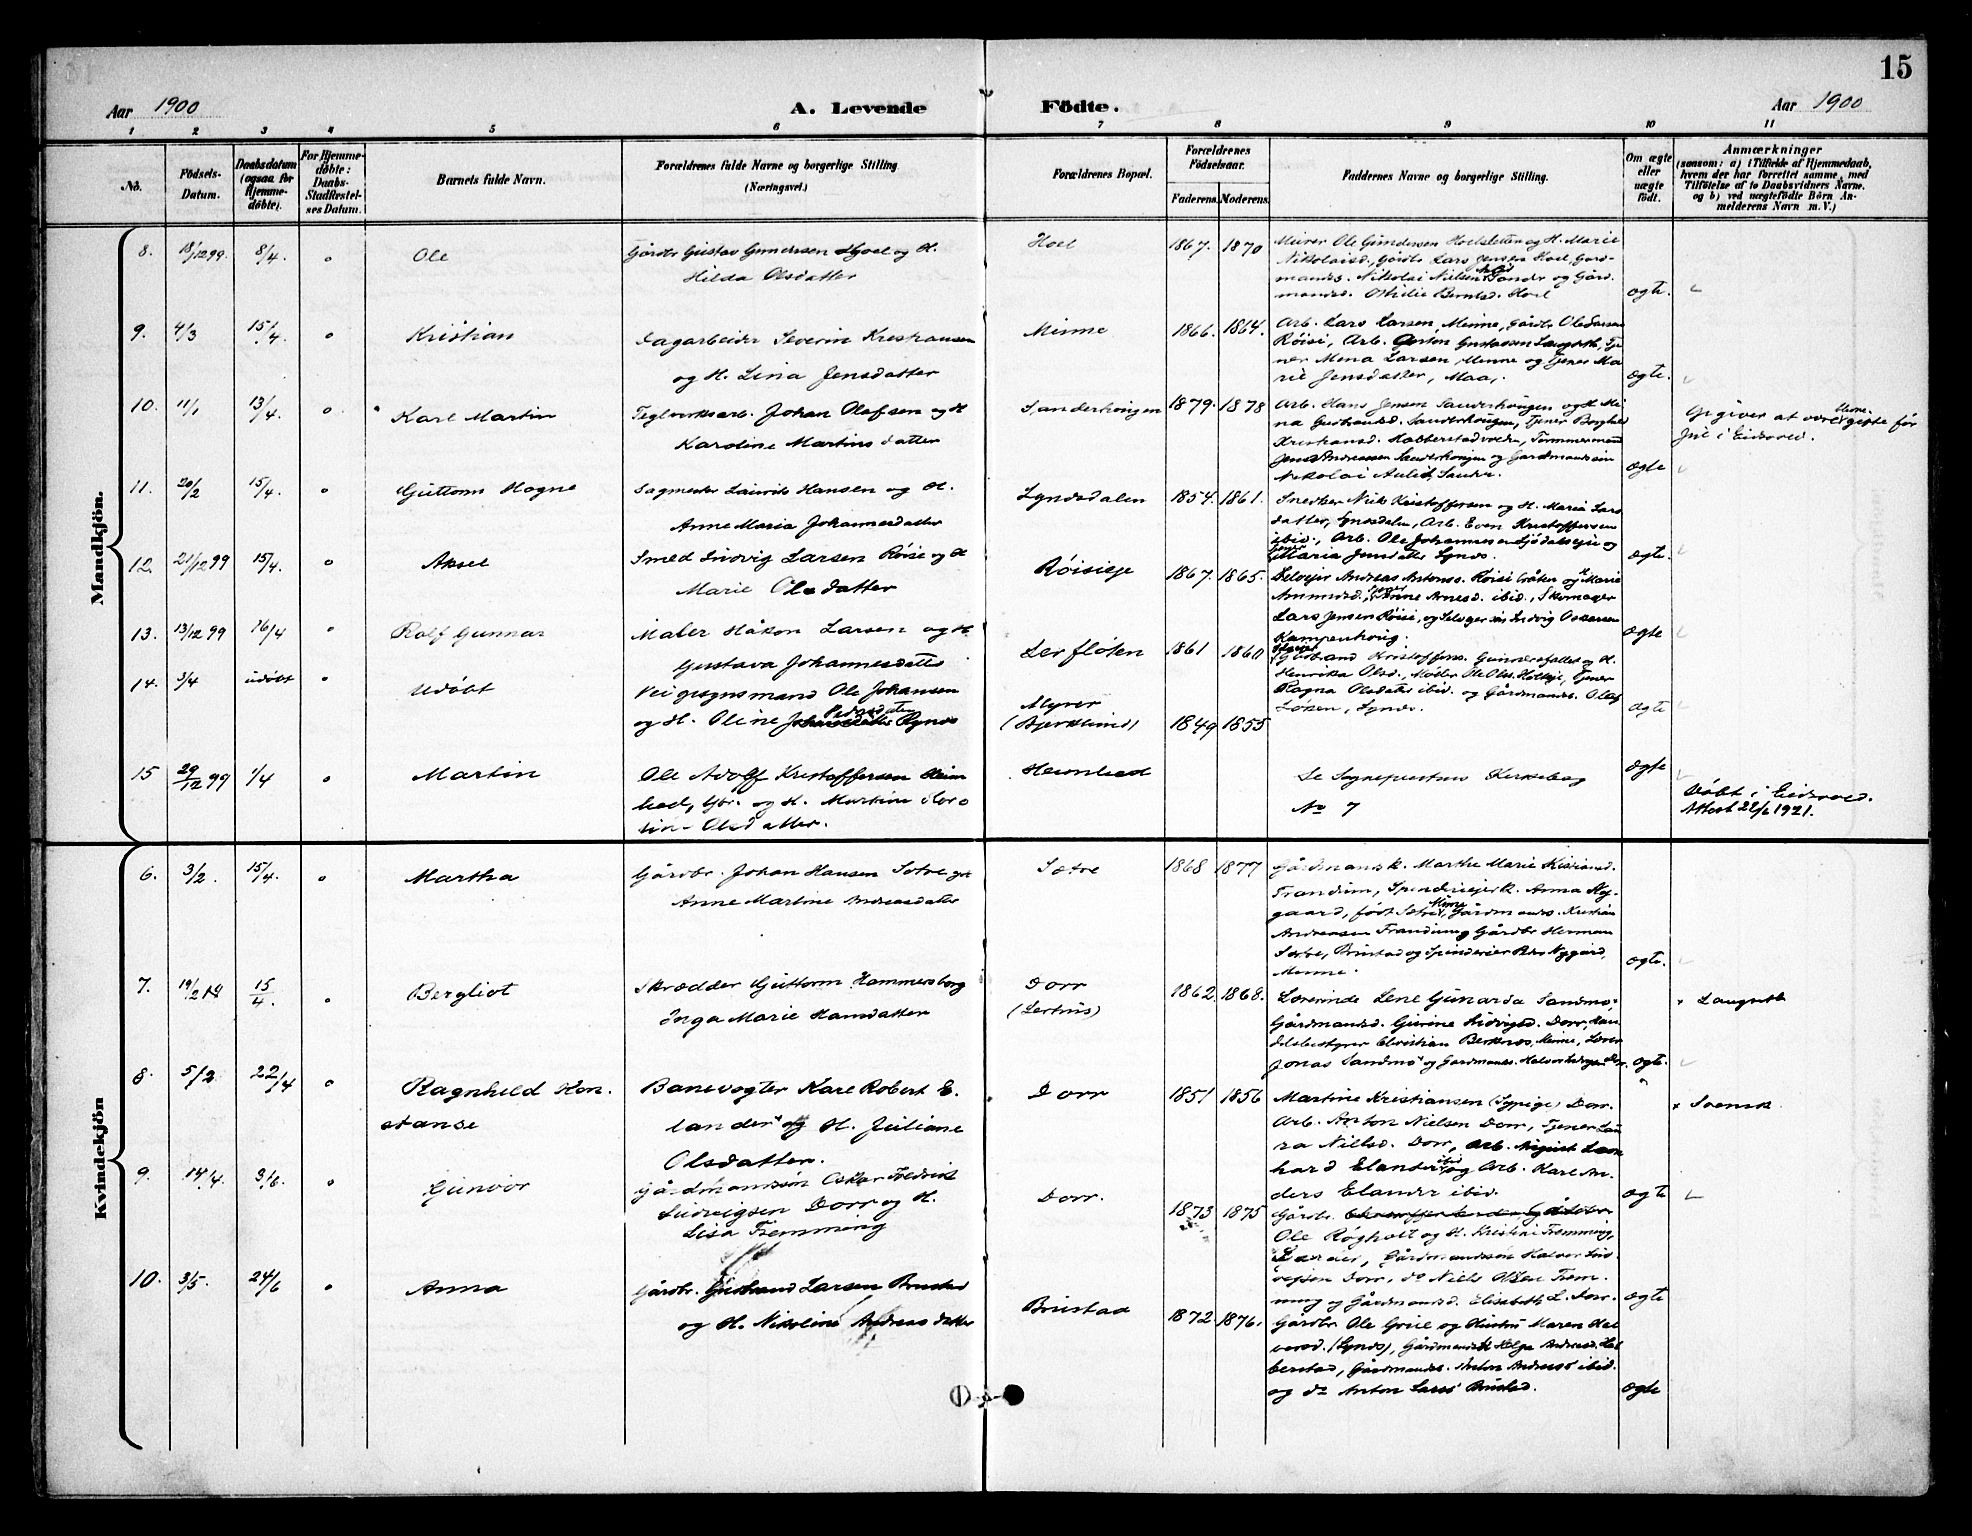 15
Aar 1900
A. Levende Födte.
Aar 1900
1 2 3 4 5 6 7 8 9 10 11
No.
Födsels-Datum.
Daabsdatum (ogsaa for Hjemme-döbte).
For Hjemme-döbte: Daabs-Stadfæstel-ses Datum.
Barnets fulde Navn.
Forældrenes fulde Navne og borgerlige Stilling.
(Næringsvei.)
Forældrenes Bopæl.
Forældrenes Födselsaar.
Faderens. Moderens.
Faddernes Navne og borgerlige Stilling.
Om ægte eller uægte födt.
Anmærkninger
(saasom: a) i Tilfælde af Hjemmedaab,
hvem der har forrettet samme, med
Tilföielse af to Daabsvidners Navne.
og b) ved uægtefödte Börn An-
melderens Navn m. V.)
Mandkjön.
8. 18/12 99. 8/4. o Ole
Gårdbr Gustav Gundersen Hoel og H.
Hilda Olsdatter
Hoel 1867. 1870
Meirer Ole Gundersen Hoelsletten og H. Marie
Nikolaisd., Gårdbr Lars Jensen Hoel, Gard-
mands. Nikolai Nielsen Sander og Gård
mandsd. Othilie Berntsd. Hoel
ægte.
9. 4/3 15/4. o Kristian
Dagarbeider Severin Kristiansen
og H. Lina Jensdatter
Minne 1866. 1864.
Arb. Lars Larsen, Minne, Gårdbr Ole Larsen
Röisi, Arb. Gustav Gustavsen Langseth, Tje
ner Mina Larsen, Minne og Tjener Ma
rie Jensdatter, Maa.
ægte.
10. 11/1 13/4. o Karl Martin
Teglverksarb. Johan Olafsen og H
Karoline Martinsdatter
Sanderhougen 1879. 1878
Arb. Hans Jensen Sanderhougen og H. Mi
na Gulbrandsd. Sanderhougen, Tjener Borghild
Kristiansd. Habberstadvolden, Tömmermand
Jens Andreassen Sanderhougen og Gardmandssön
Nikolai Aulie, Sander.
ægte
Opgiver at være gifte för
Jul i Eidsvold.
11. 20/2 15/4. o Guttorm Hagne
Sagmester Laurits Hansen og H.
Anne Maria Johannesdatter
Lynesdalen 1854. 1861.
Snedker Niels Kristoffersen og H. Maria Lars
datter, Lynesdalen, Arb. Even Kristoffersen
ibid., Arb. Ole Johannesen Sjödalseie og
Maria Jensdatter Lynes.
ægte.
12. 21/12 99 15/4. o Aksel
Smed Ludvig Larsen Röise og H
Marie Olsdatter
Röisieje 1867. 1865.
Selveier Andreas Antons. Röisi Bråten og H Marie
Amundsd., Anne Arnesd. ibid., Skomager
Lars Jensen Röise, og Selveiersön Ludvig Oskarsen
Kampenhoug.
ægte
13. 13/12 99 16/4 o Rolf Gunnar
Maler Håkon Larsen og H
Gustava Johannesdatter
Lerflöten 1861 1860
Gulbrand Kristoffers. Gunnersfallet og H.
Henrika Olsd., Möller Ole Ols. Holteje, Tjener
Ragna Olsdatter ibid. og Gårdmands. Olaf
Löken, Lynes.
ægte
14. 3/4 udöbt o Udöbt
Veivogtsmand Ole Johansen
og H. Oline Pedersdatter Lynes
Myrer
(Bjerklund) 1849 1855
ægte
15 29/12 99 1/4 o Martin
Ole Adolf Kristoffersen Heim
hed, Gbr. og H. Martine Kar o
lin- Olsdatter.
Heimhed
Se Sogneprestens Kirkebog
No 7
Döbt i Eidsvold.
Attest 22/6 1921.
Kvindekjön
6. 3/2. 15/4. o Martha
Gårdbr. Johan Hansen Sætre og H
Anne Martine Andreasdatter
Sætre 1868 1877
Gårdmansk. Marthe Marie Kristiansd.
Trandum, Spinderieierk. Anna Ny-
gaard, född Sætre, Minne, Gårdmands. Kristian
Andreasen Trandum og Gårdbr Herman
Sætre, Brustad og Spinderieier Peder Nygård,
Minne.
ægte.
7. 19/2 15/4. o Bergliot
Skrædder Guttorm Hammersborg
Inga Marie Hansdatter
Dorr
(Lerhus) 1862. 1868.
Lærerinde Lene Gunarda Sandmo,
Gårdmandsd. Gurine Ludvigsd. Dorr, Han
delsbestyrer Christian Berknes, Minne, Lærer
Jonas Sandmo og Gardmands. Halvor Ludvigsen Dorr.
ægte.
Langseth
8 5/2 22/4 o Ragnhild Kon-
stanse
Banevogter Karl Robert E.
lander og H. Juliane
Olsdatter.
Dorr 1851 1856
Martine Kristiansen (Sypige) Dorr.
Arb. Anton Nielsen Dorr, Tjener Lau
ra Nielsd. Dorr, Arb. August Leon
hard Elander ibid og Arb. Karl An-
ders Elander ibid.
ægte
Svensk.
9. 14/4. 3/6. o Gunvor
Gårdmandssön Oskar Fredrik
Ludvigsen Dorr og H.
Lisa Fremming
Dorr. 1873 1875
Gårdbr.
Ole Rögholt og H. Kristine Fremming,
Gårdmandssön Halvor Lud
vigsen Dorr, do Niels Olsen Frem-
ming og Gårdmandsd. Elisabeth L. Dorr.
ægte
10. 3/5. 24/6 o Anna
Gårdbr. Gulbrand Larsen Brustad
og H. Nikoline Andreasdatter
Brustad 1872. 1876.
Gårdbr Ole Grue og Hustru Maren Hal
vorsd. (Lynes), Gårdmandsd Helga Andreasd. Hab
berstad, Gårdmands. Anton Andreas ibid.
og do Anton Larss Brustad.
ægte